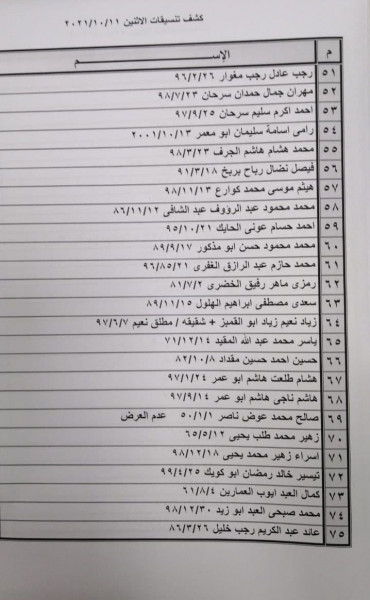 كشف تنسيقات الاثنين ٢٠٢١/١٠/١١
م الإســـــم
٥١ رجب عادل رجب مغوار ٩٦/٢/٢٦
٥٢ مهران جمال حمدان سرحان ٩٨/٧/٢٣
٥٣ احمد اكرم سليم سرحان ٩٧/٩/٢٥
٥٤ رامي اسامة سليمان ابو معمر ٢٠٠١/١٠/١٣
٥٥ محمد هشام هاشم الجرف ٩٨/٣/٢٣
٥٦ فيصل نضال رباح بربخ ٩١/٣/١٨
٥٧ هيثم موسى محمد كوارع ٩٨/١١/١٣
٥٨ محمد محمود عبد الرؤوف عبد الشافى ٨٦/١١/١٢
٥٩ احمد حسام عونى الحايك ٩٥/١٠/٢١
٦٠ محمد محمود حسن ابو مذكور ٨٩/٩/١٧
٦١ محمد حازم عبد الرازق الغفرى ٩٦/٨٥/٢١
٦٢ رمزى ماهر رفيق الخضرى ٨١/٧/٢
٦٣ سعدى مصطفى ابراهيم الهلول ٨٩/١١/١٥
٦٤ زياد نعيم زياد ابو القمبز + شقيقه / مطلق نعيم ٩٧/٦/٧
٦٥ ياسر محمد عبد الله المقيد ٧١/١٢/١٤
٦٦ حسين احمد حسين مقداد ٨٢/١٠/٨
٦٧ هشام طلعت هاشم ابو عمر ٩٧/١/٢٤
٦٨ هاشم ناجى هاشم ابو عمر ٩٧/٩/١٤
٦٩ صالح محمد عوض ناصر ٥٠/١/١ عدم العرض
٧٠ زهير محمد طلب يحيى ٦٥/٥/١٢
٧١ اسراء زهير محمد يحيى ٩٨/١٢/١٨
٧٢ تيسير خالد رمضان ابو كويك ٩٩/٤/٢٥
٧٣ كمال العبد ايوب العمارين ٦١/٨/٤
٧٤ محمد صبحى العبد ابو زيد ٩٨/١٢/٣٠
٧٥ عائد عبد الكريم رجب خليل ٨٦/٣/٢٦